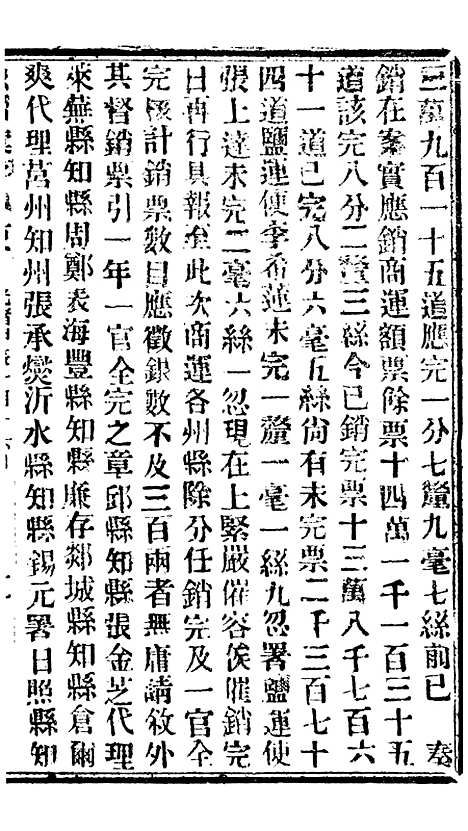 三萬九百一十五道應完一分七釐九毫七絲前已 奏
銷在案實應銷商運額票除票十四萬一千一百三十五
道該完八分二釐三絲今已銷完票十三萬八千七百六
十一道已完八分六毫五絲尙有未完票二千三百七十
四道鹽運使李希蓮未完一釐一毫一絲九忽署鹽運使
張上達未完二毫六絲一忽現在上緊嚴催容俟催銷完
日再行具報至此次商運各州縣除分任銷完及一官全
完核計銷票數目應徵銀數不及三百兩者無庸請敘外
其督銷票引一年一官全完之章邱縣知縣張金芝代理
萊蕪縣知縣周鄭表海豐縣知縣廉存郯城縣知縣倉爾
爽代理莒州知州張承燮沂水縣知縣錫元署日照縣知